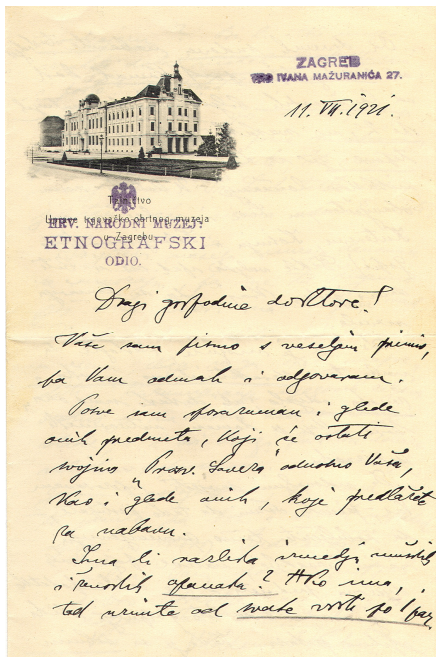 ZAGREB
TRG IVANA MAŽURANIĆA 27.
11. VII. 1921.
Tajništvo
Uprave trgovačko obrtnog muzeja
u Zagrebu
HRV. NARODNI MUZEJ:
ETNOGRAFSKI
ODIO.
Dragi gospodine doktore!
Vaše sam pismo s veseljem primio,
pa Vam odmah i odgovaram.
Posve sam sporazuman i glede
onih predmeta, koji će ostati
svojina "Prosv. Saveza" odnosno Vaša,
kao i glede onih, koje predlažete
za nabavu.
Ima li razlika između muških
i ženskih opanaka? Ako ima,
tad uzmite od svake vrsti po 1 par